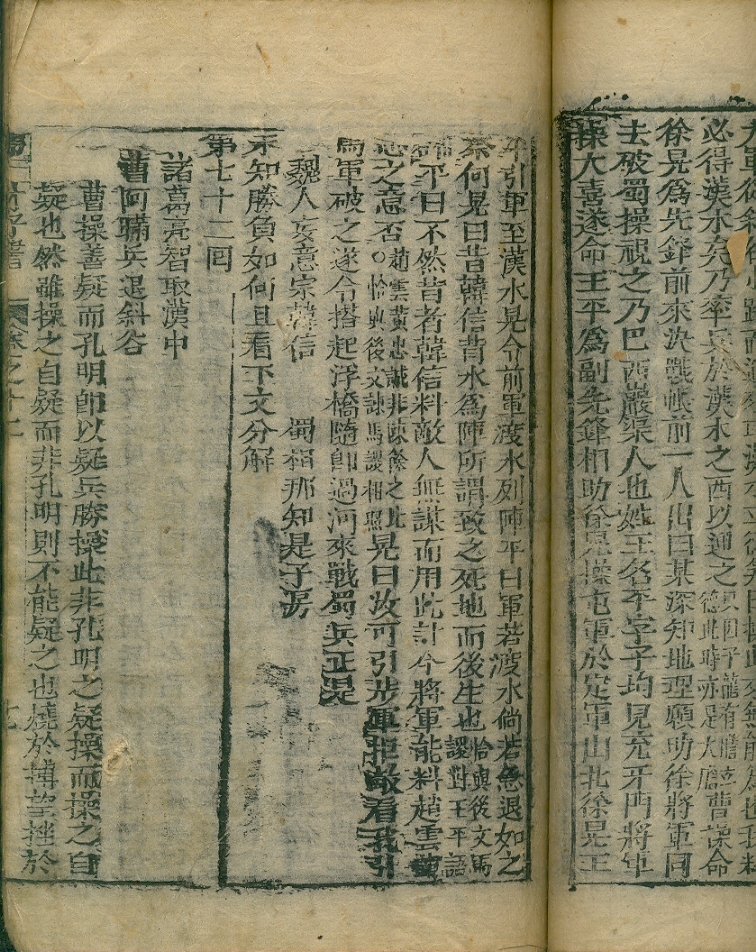 必得漢水矣乃率兵於漢水之西以迎之
徐晃為先鋒前來決戰帳前一人出曰某深知地理願助徐將軍同
去破蜀操視之乃巴西巖渠人也姓王名平字子均見充牙門將軍
操大喜遂命王平為副先鋒相助徐晃操屯軍於定軍山北徐晃王
平引軍至漢水晃令前軍渡水列陣平曰軍若渡水倘若急退如之
奈何晃曰昔韓信背水為陣所謂致之死地而後生也恰與後文馬謖對王平語
平曰不然昔者韓信料敵人無謀而用此計今將軍能料趙雲黃
忠之意否恰與後文諫馬謖相照晃曰汝可引步軍拒敵看我引
馬軍破之遂令搭起浮橋隨即過河來戰蜀兵正是
魏人妄意宗韓信 蜀相那知是子房
未知勝負如何且看下文分解
第七十二回
諸葛亮智取漢中
曹阿瞞兵退斜谷
曹操善疑而孔明即以疑兵勝操此非孔明之疑操而操之自
疑也然雖操之自疑而非孔明則不能疑之也燒於博望挫於
第一才子書 卷之十二